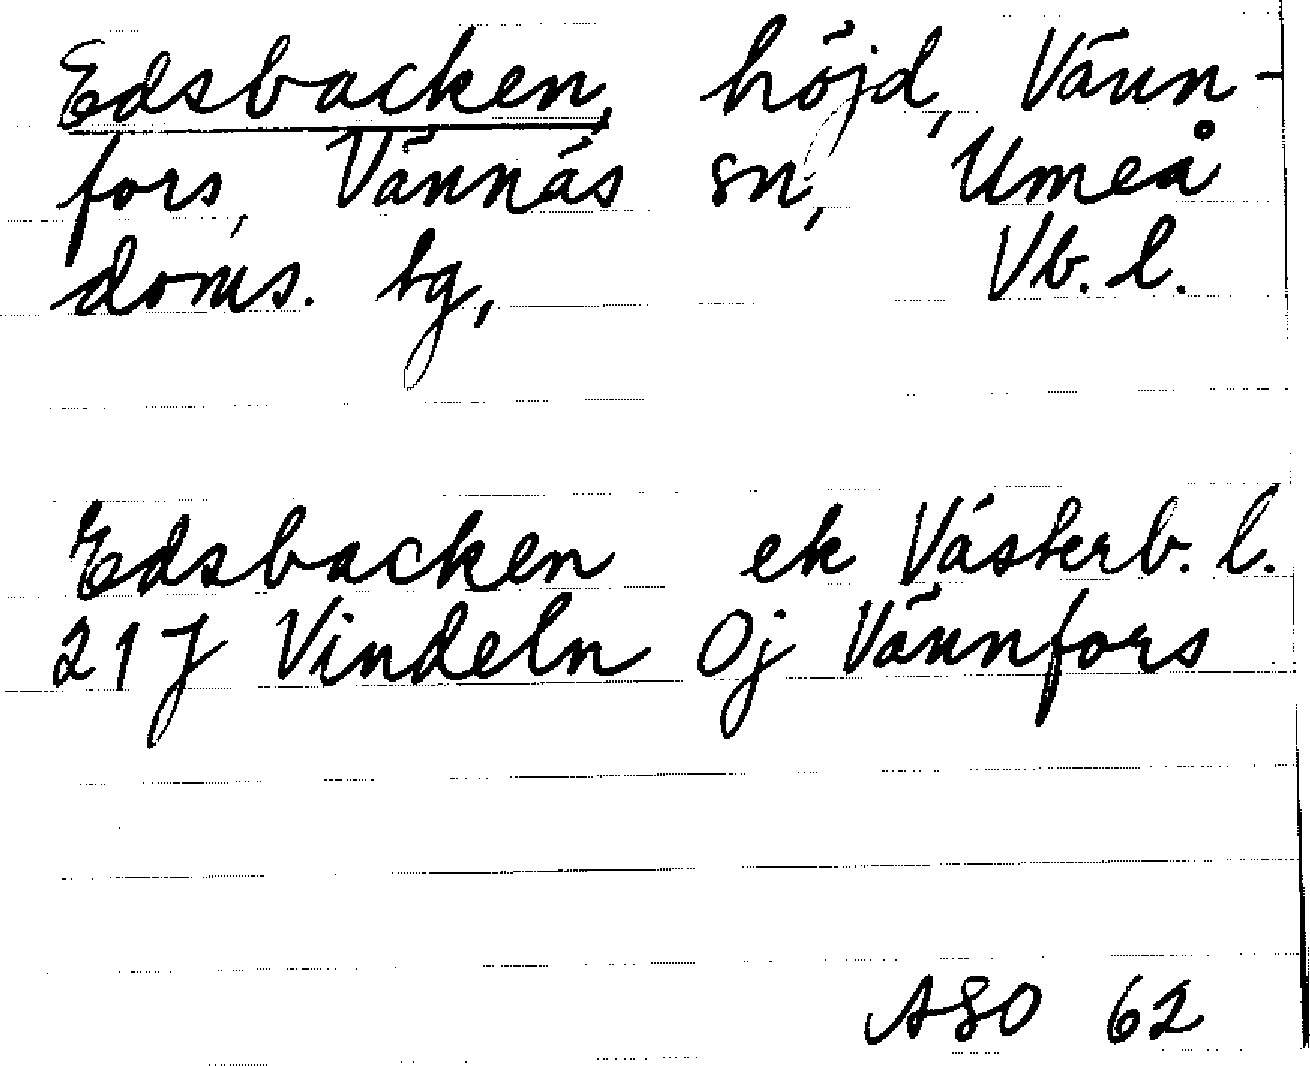 Edsbacken, höjd, Vänn-
fors, Vännäs sn, Umeå
doms. tg, Vb. l.
Edsbacken ek Västerb. l.
21 J Vindeln 0j Vännfors
ASO 62